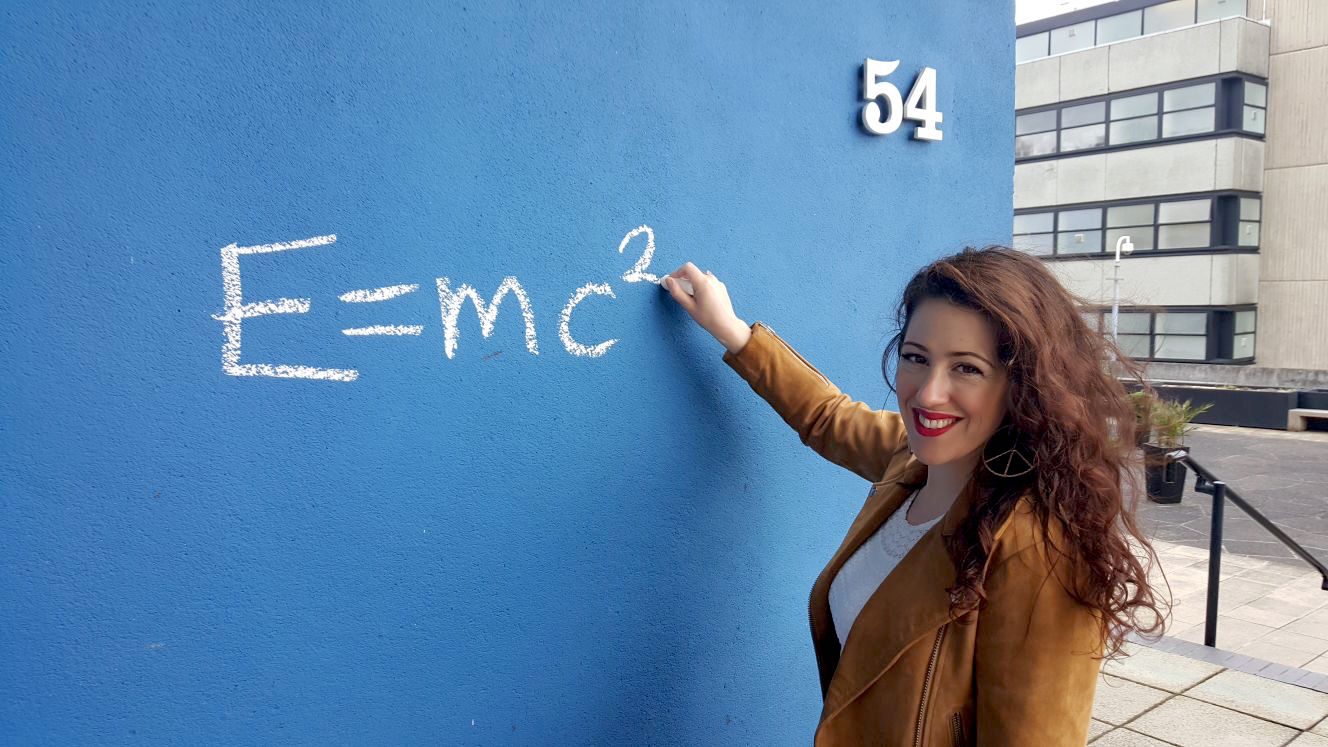 54
E=mc²